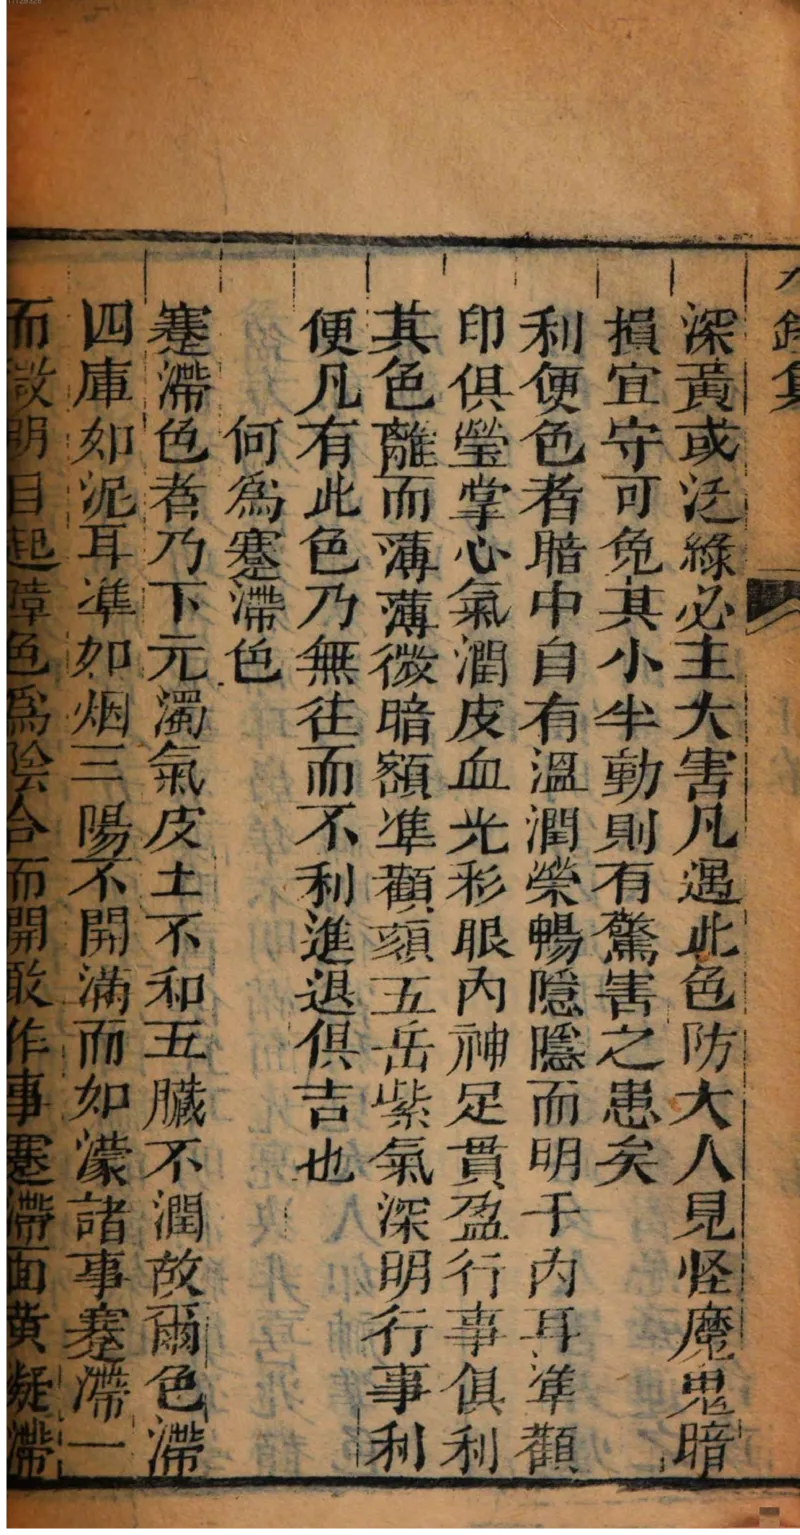 深黃或泛綠必主大害凡遇此色防大人見怪魔鬼暗
損宜守可免其小半動則有驚害之患矣
利便色者暗中自有溫潤榮暢隱隱而明于內耳準顴
印俱瑩掌心氣潤皮血光彩眼內神足貫盈行事俱利
其色離而薄薄微暗額準顴頦五岳紫氣深明行事利
便凡有此色乃無往而不利進退俱吉也
何爲蹇滯色
蹇滯色者乃下元濁氣皮土不和五臟不潤故爾色滯
四庫如泥耳準如烟三陽不開滿而如濛諸事蹇滯一
而散明目起陸色爲陰合而開敢作事蹇滯面黃凝滯